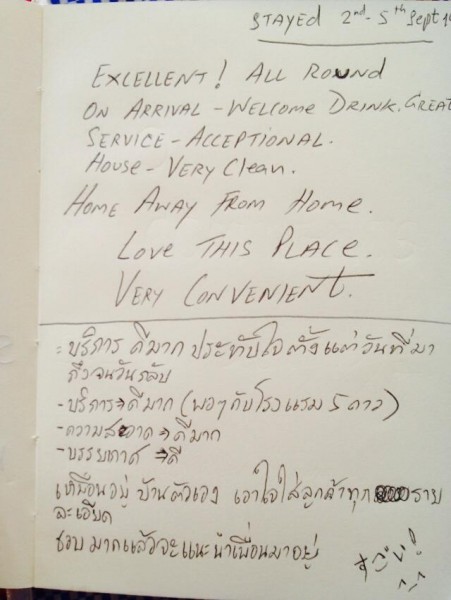 STAYED 2nd - 5th Sept
EXCELLENT! ALL ROUND
ON ARRIVAL - WELCOME DRINK. GREAT
SERVICE - ACCEPTIONAL.
HOUSE - VERY CLEAN.
HOME AWAY FROM HOME.
LOVE THIS PLACE.
VERY CONVENIENT.
- บริการ ดีมาก ประทับใจ ตั้งแต่ วันที่มา
ถึงจนวันกลับ
- บริการ → ดีมาก (พอๆกับโรงแรม 5 ดาว)
- ความสะอาด → ดีมาก
- บรรยกาศ → ดี
เหมือนอยู่ บ้านตัวเอง เอาใจใส่ลูกค้าทุกราย
ละเอียด
ชอบ มากแล้วจะแนะนำเพื่อนมาอยู่